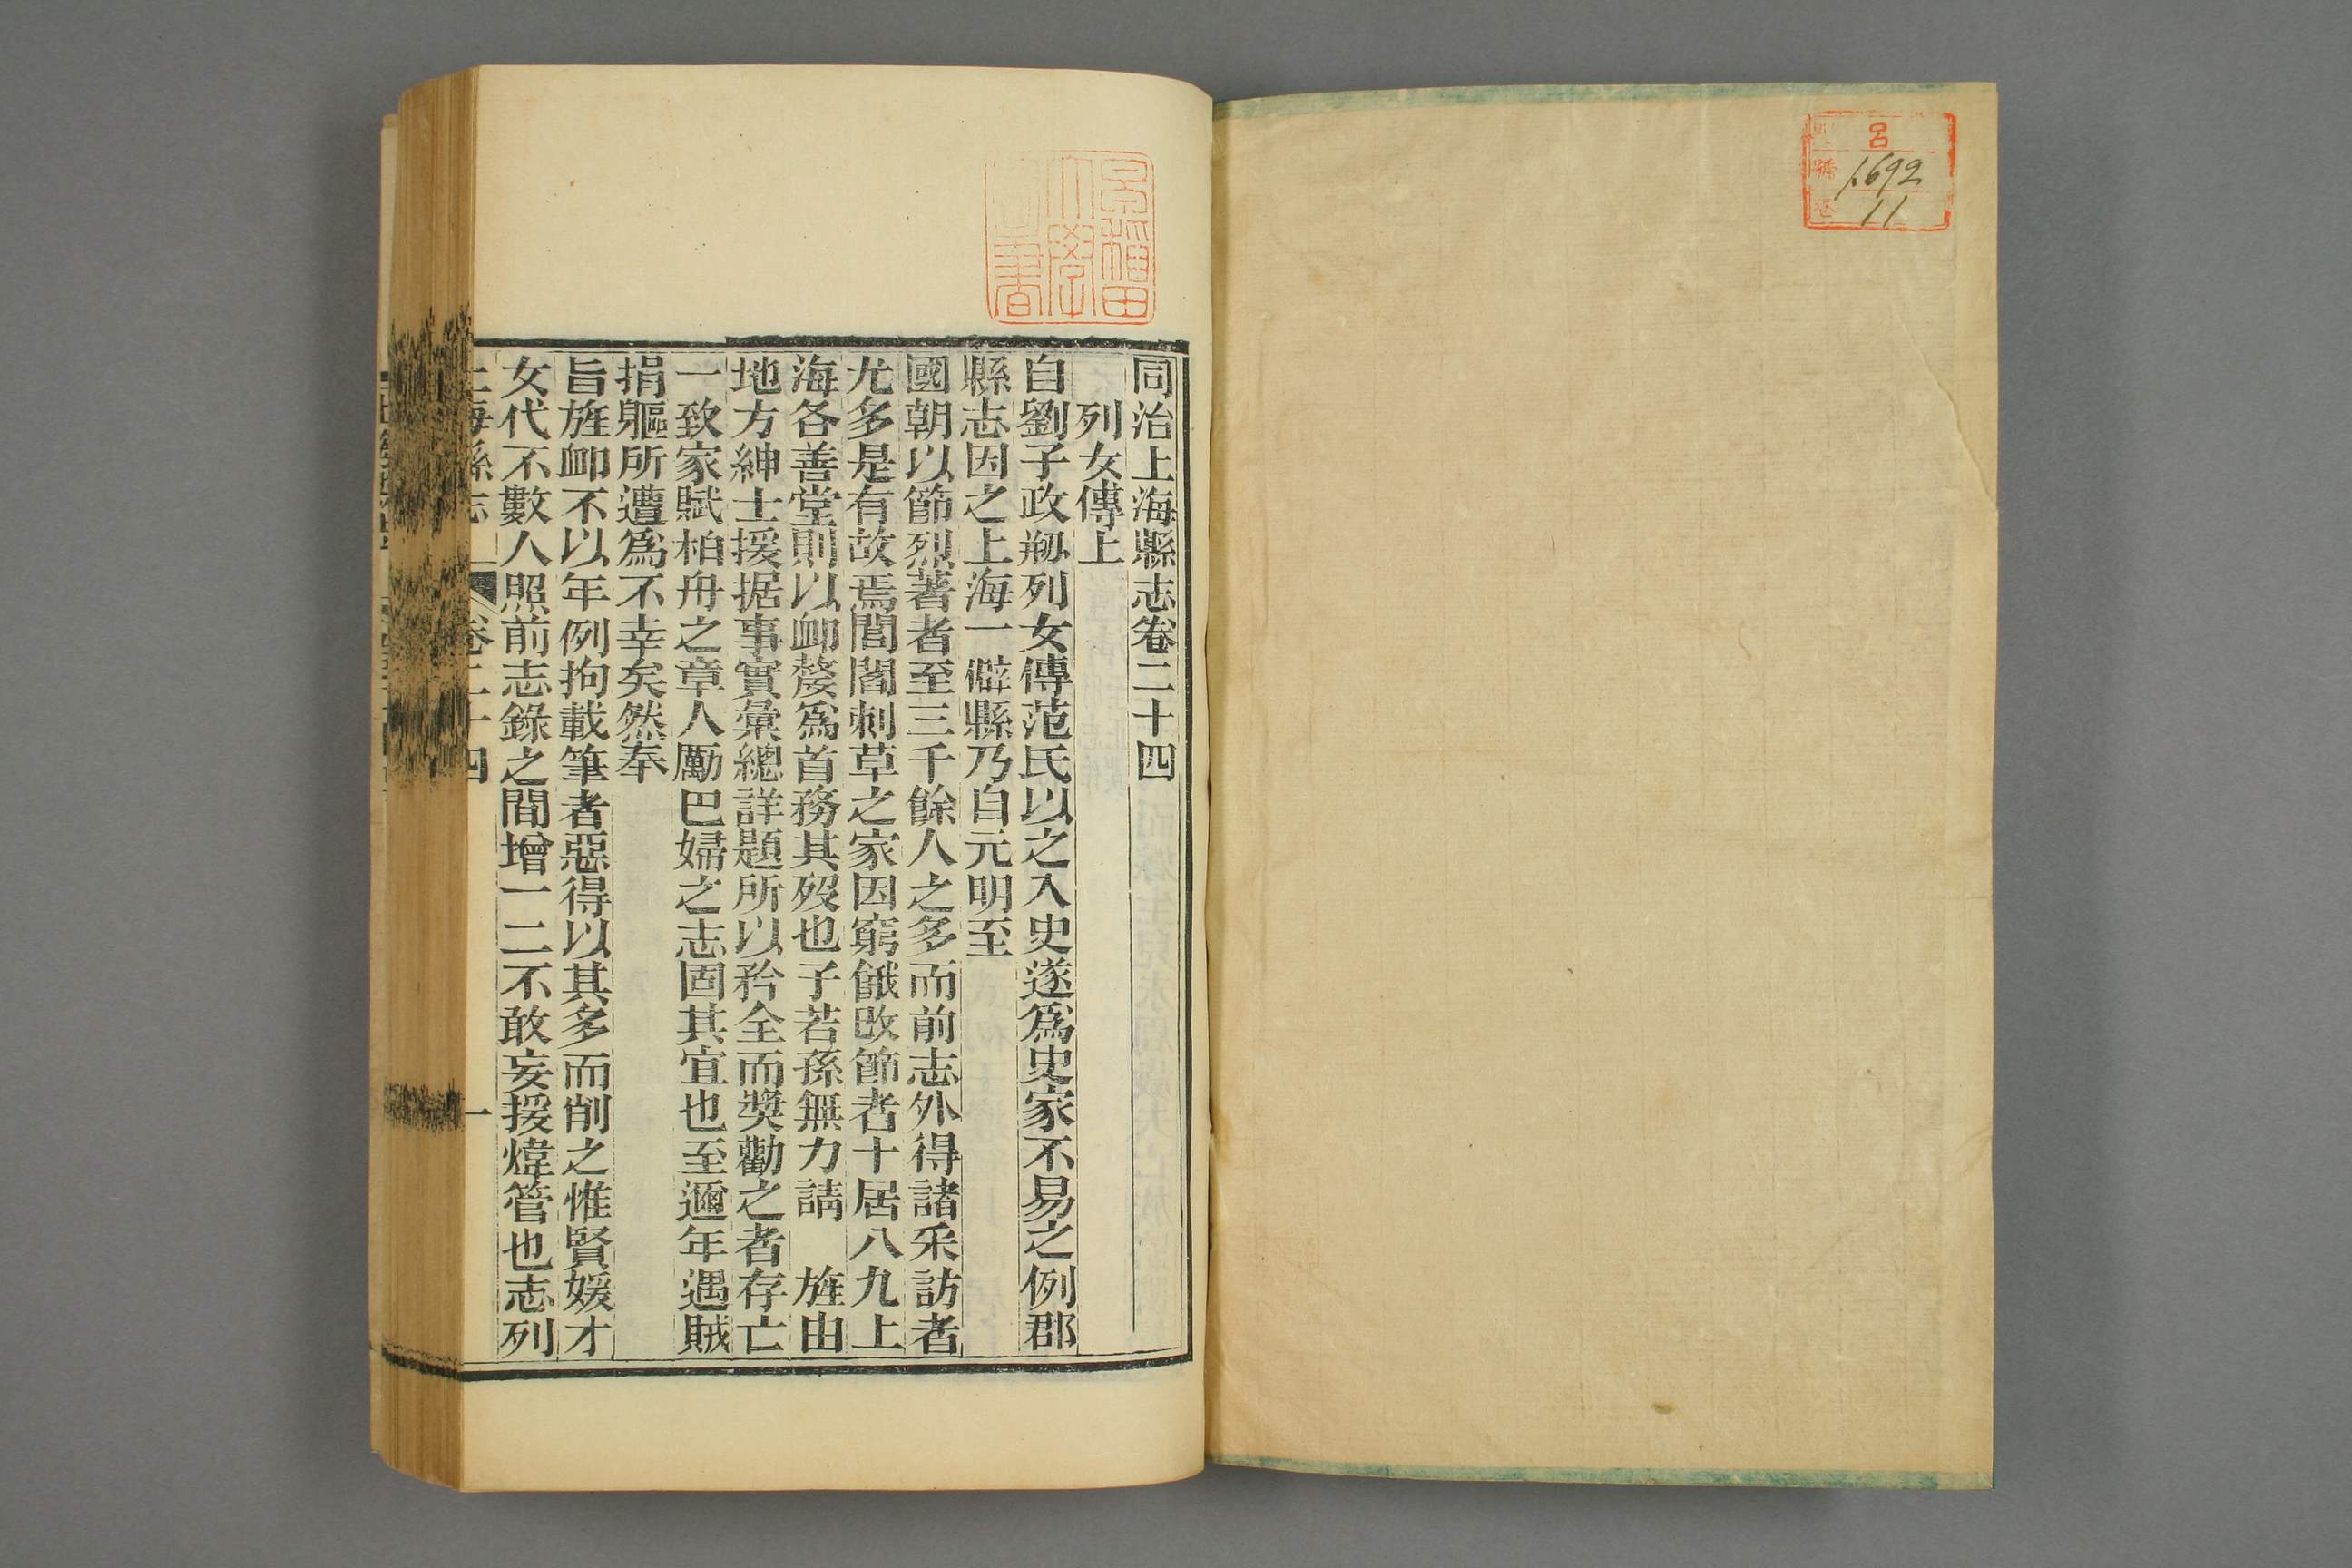 呂
號 1692
卷 11
早稲田
大學
圖書
同治上海縣志卷二十四
列女傳上
自劉子政剏列女傳范氏以之入史遂爲史家不易之例郡
縣志因之上海一僻縣乃自元明至
國朝以節烈著者至三千餘人之多而前志外得諸采訪者
尤多是有故焉閭閻刺草之家因窮餓改節者十居八九上
海各善堂則以卹嫠爲首務其歿也子若孫無力請 旌由
地方紳士援据事實彙總詳題所以矜全而奬勸之者存亡
一致家賦柏舟之章人勵巴婦之志固其宜也至邇年遇賊
捐軀所遭爲不幸矣然奉
旨旌卹不以年例拘載筆者惡得以其多而削之惟賢媛才
女代不數人照前志錄之間增一二不敢妄援煒管也志列
上海縣志 卷二十四 一